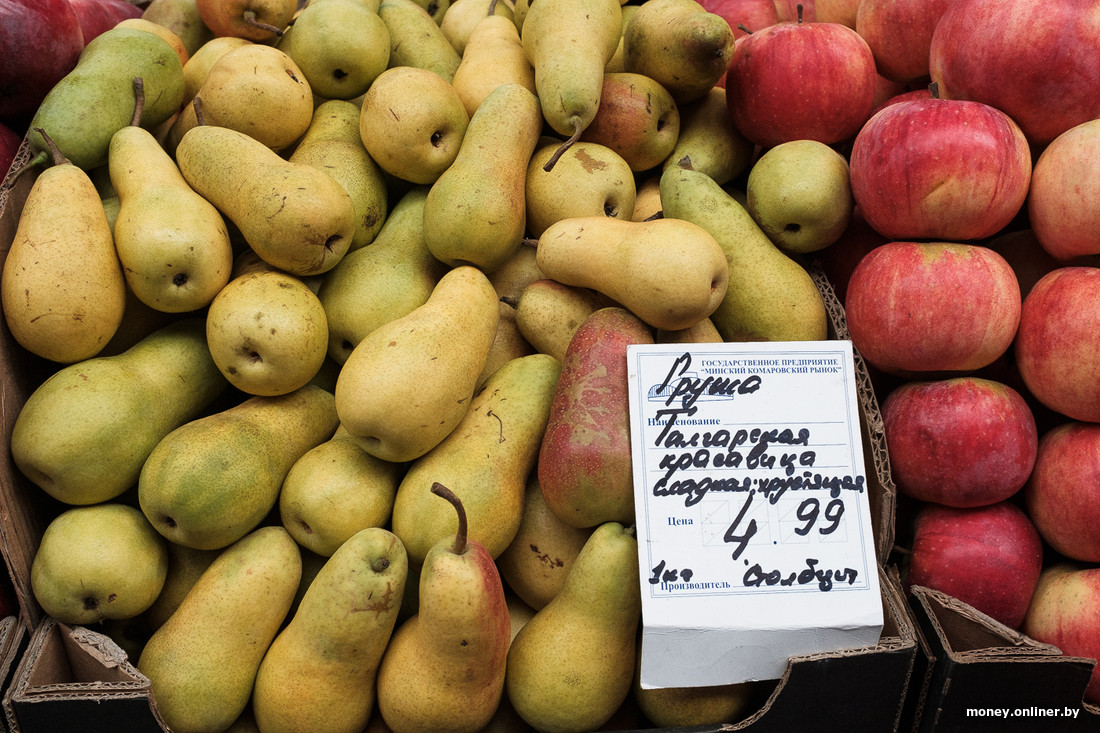 ГОСУДАРСТВЕННОЕ ПРЕДПРИЯТИЕ
"МИНСКИЙ КОМАРОВСКИЙ РЫНОК"
Груша
Наименование
Талгарская
красавица
сладкая, хрустящая
Цена 4.99
1кг
Производитель Столбцы
money.onliner.by